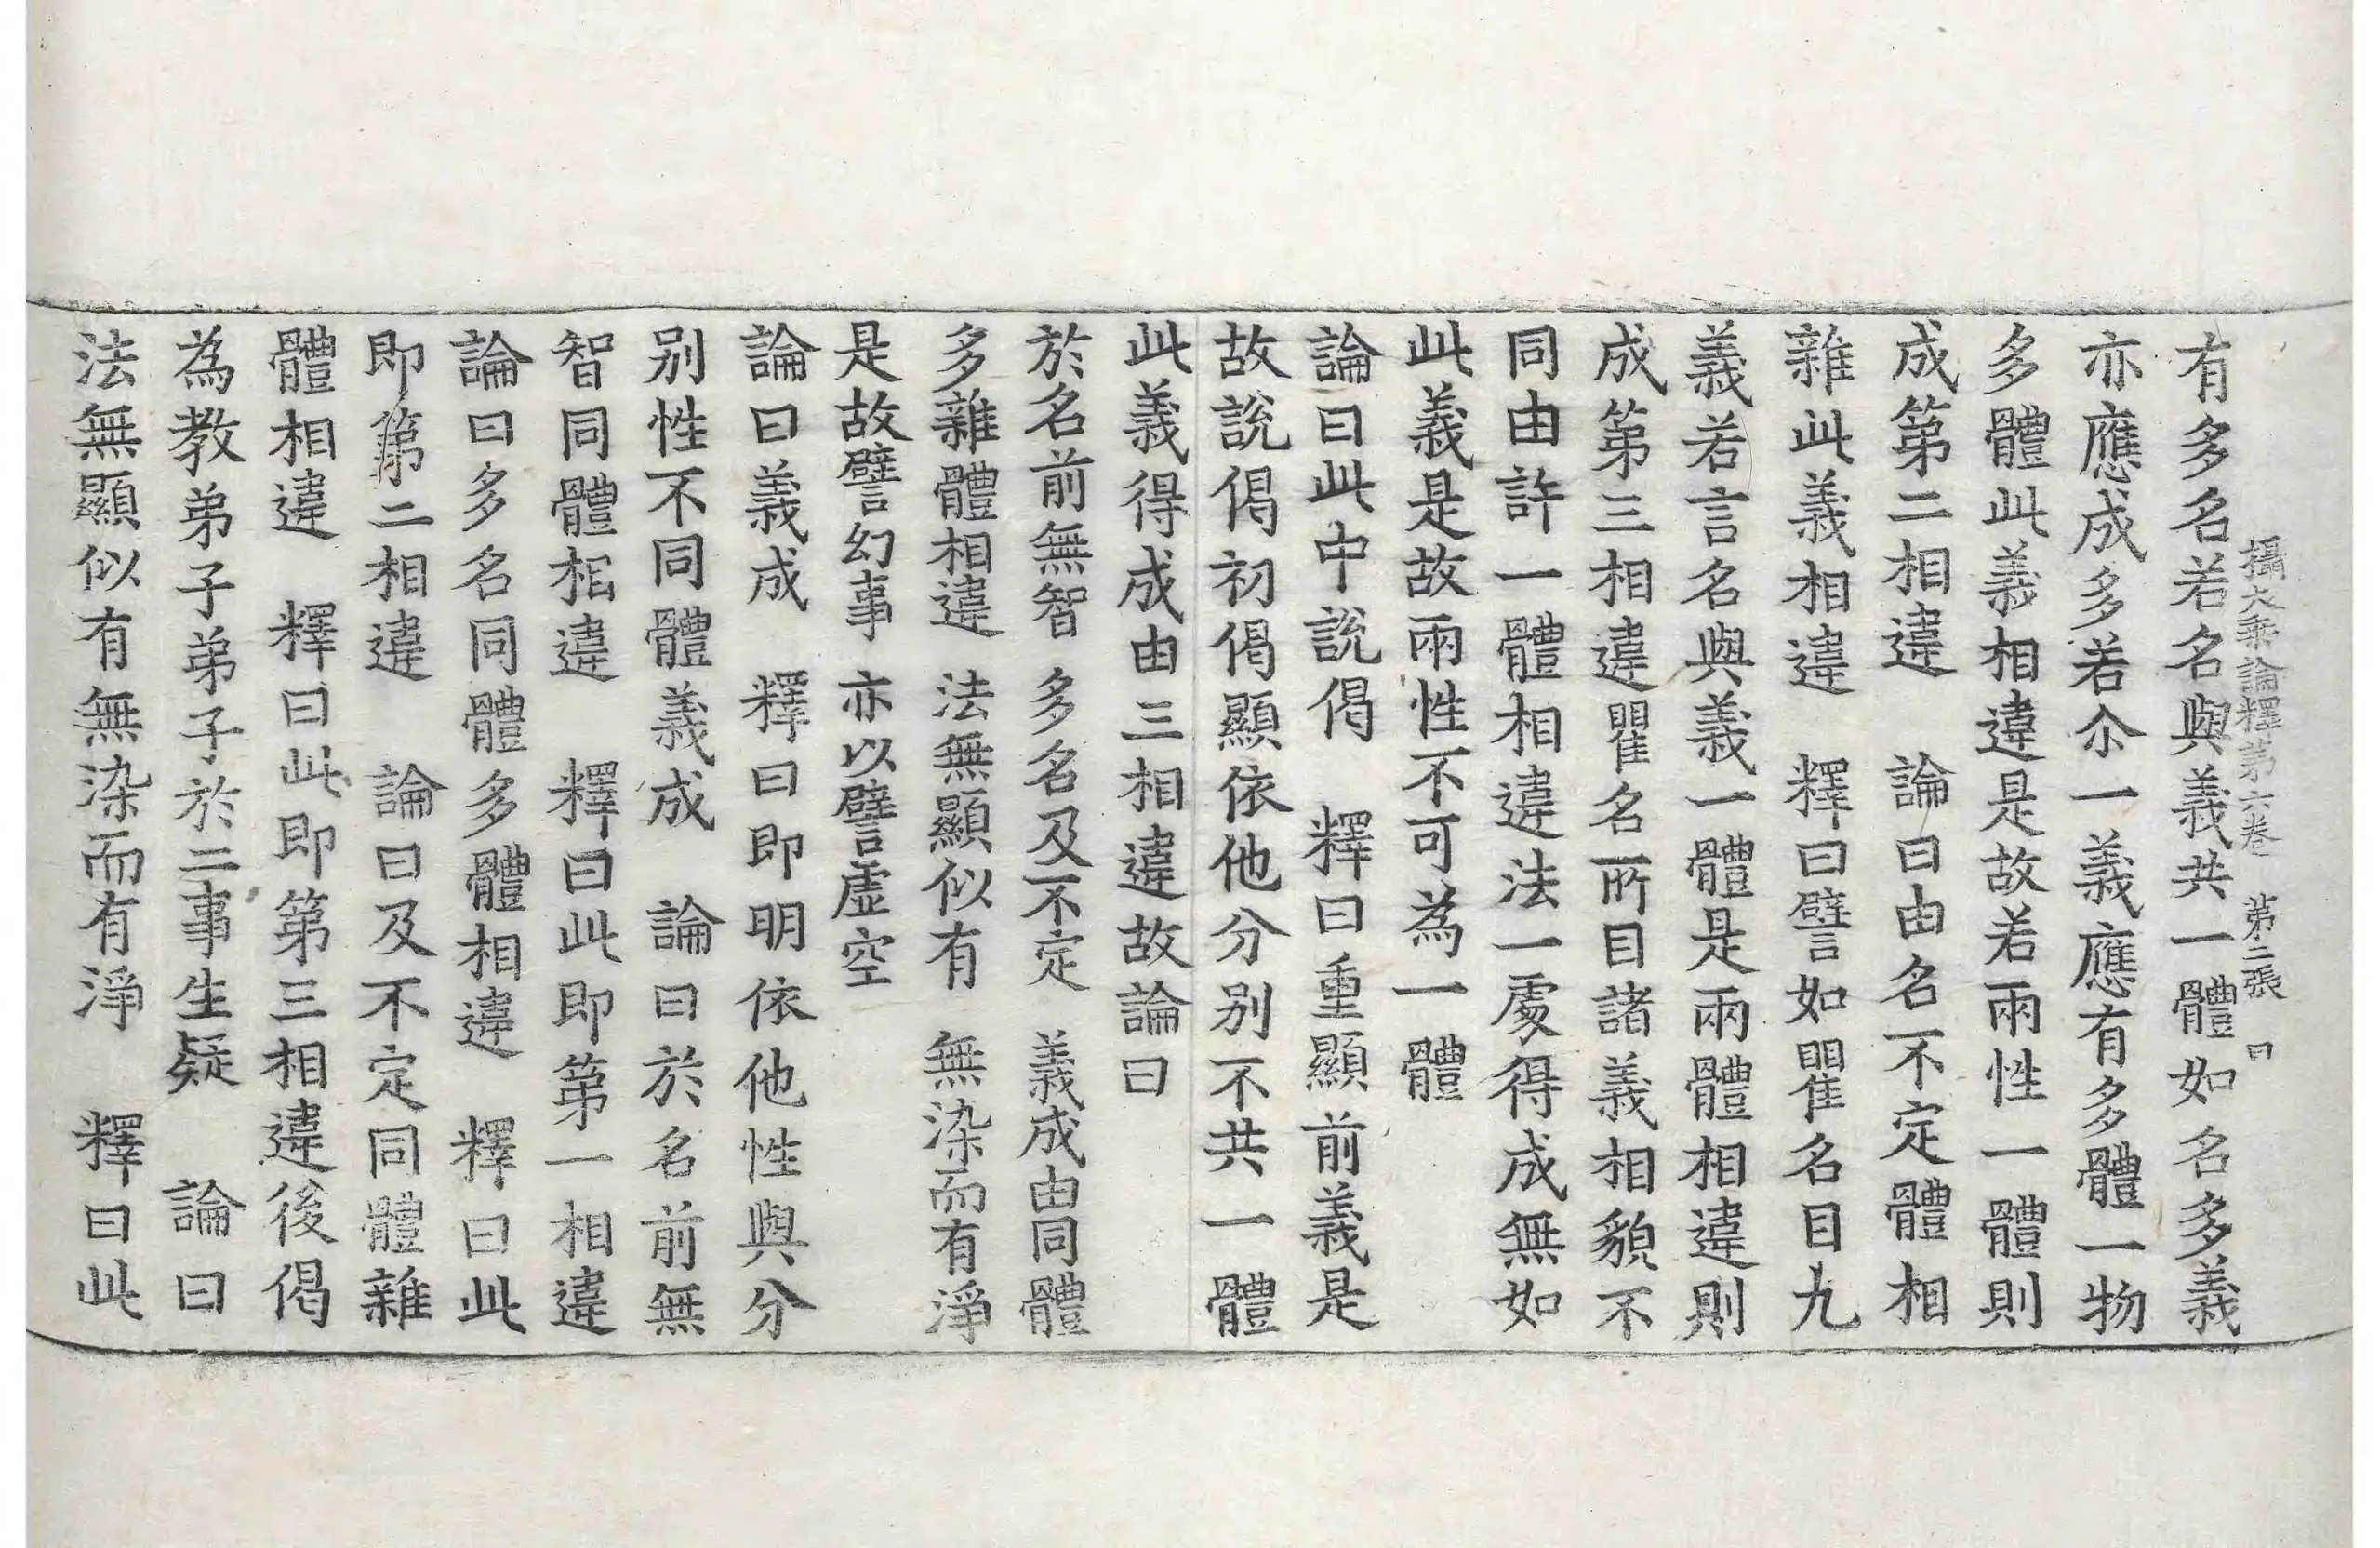 攝大乘論釋第六卷 第二張 曰
有多名若名與義共一體如名多義
亦應成多若尒一義應有多體一物
多體此義相違是故若兩性一體則
成第二相違 論曰由名不定體相
雜此義相違 釋曰譬如瞿名目九
義若言名與義一體是兩體相違則
成第三相違瞿名所目諸義相貌不
同由許一體相違法一處得成無如
此義是故兩性不可為一體
論曰此中說偈 釋曰重顯前義是
故說偈初偈顯依他分别不共一體
此義得成由三相違故論曰
於名前無智 多名及不定 義成由同體
多雜體相違 法無顯似有 無染而有淨
是故譬幻事 亦以譬虛空
論曰義成 釋曰即明依他性與分
别性不同體義成 論曰於名前無
智同體相違 釋曰此即第一相違
論曰多名同體多體相違 釋曰此
即第二相違 論曰及不定同體雜
體相違 釋曰此即第三相違後偈
為教弟子弟子於二事生疑 論曰
法無顯似有無染而有淨 釋曰此